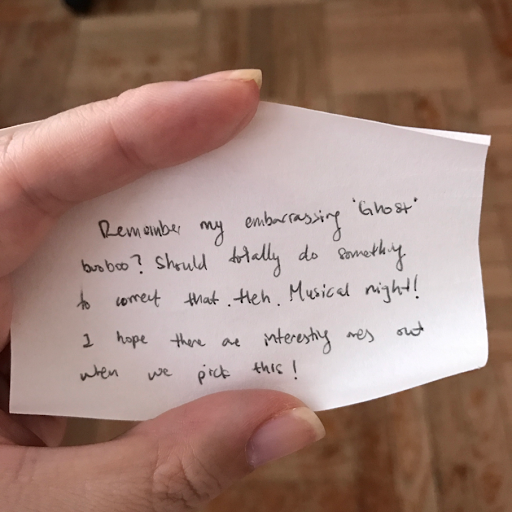 Remember my embarrassing 'Ghost'
booboo? Should totally do something
to correct that. Heh. Musical night!
I hope there are interesting ones out
when we pick this!